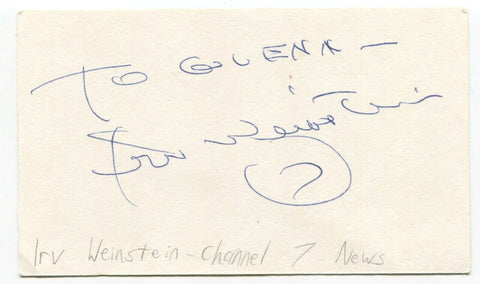 To GLENN —
Irv Weinstein
7
Irv Weinstein - Channel 7 News